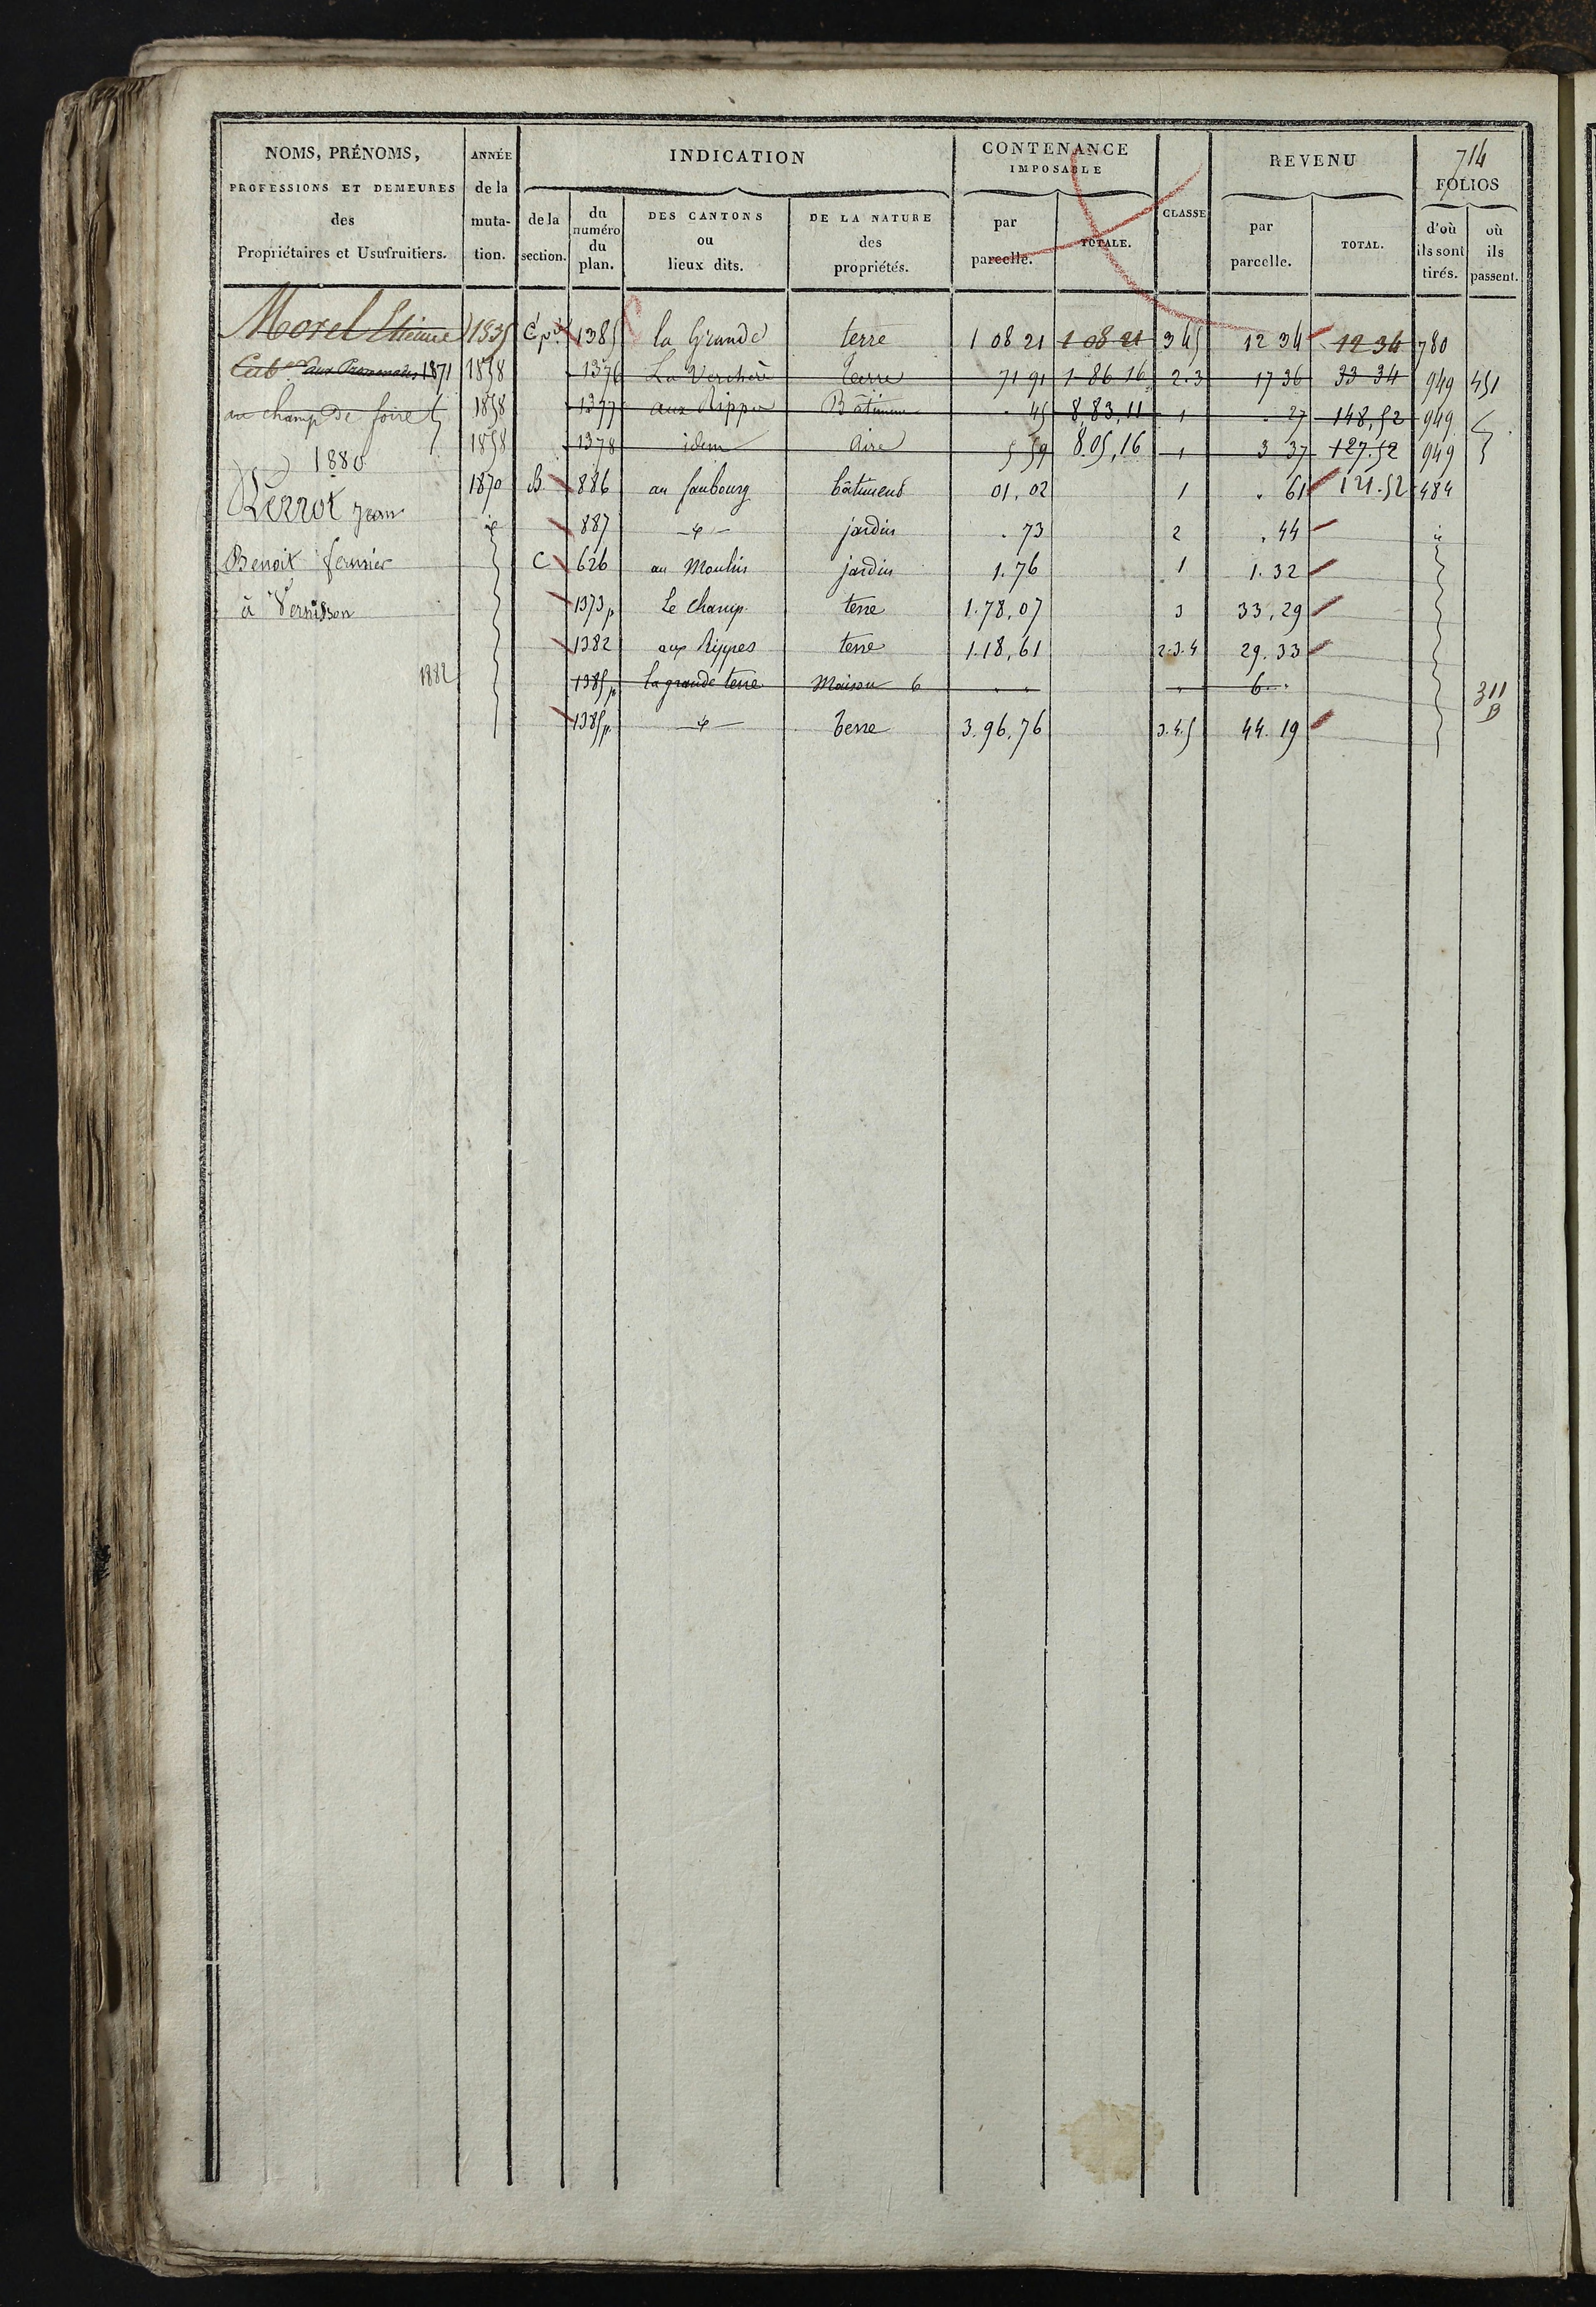 714
NOMS, PRÉNOMS, ANNÉE INDICATION CONTENANCE REVENU
PROFESSIONS ET DEMEURES de la IMPOSABLE FOLIOS
des muta- de la du numéro du plan. DES CANTONS ou lieux dits. DE LA NATURE des propriétés. par parcelle. TOTALE. CLASSE par parcelle. TOTAL. d'où ils sont tirés. où ils passent.
Propriétaires et Usufruitiers. tion. section.
Morel Etienne 1835 C 1385 la Grande terre 1 08 21 1 08 21 3 4 5 12 34 12 34 780
aux Promenades 1871 1858 1376 La Verchère terre 71 91 1 86 16 2.3 17 36 33 34 949 451
au champ de foire 1858 1377 aux Rippes Bâtiment . 45 8,83,11 1 . 27 148,52 949
1858 1378 idem Aire 5 59 8.05,16 1 3 37 127.52 949
1880
Perrot Jean 1870 B 886 au faubourg bâtiment 01,02 1 . 61 121.52 484
887 jardin . 73 2 . 44
Benoit fermier C 626 au Moulin jardin 1.76 1 1.32
à Vernisson 1373p Le champ terre 1.78,07 3 33,29
1382 aux Rippes terre 1.18,61 2.3.4 29.33
1882 1385p la grande terre Maison 6 6 311 B
1385p terre 3.96,76 3.4.5 44.19